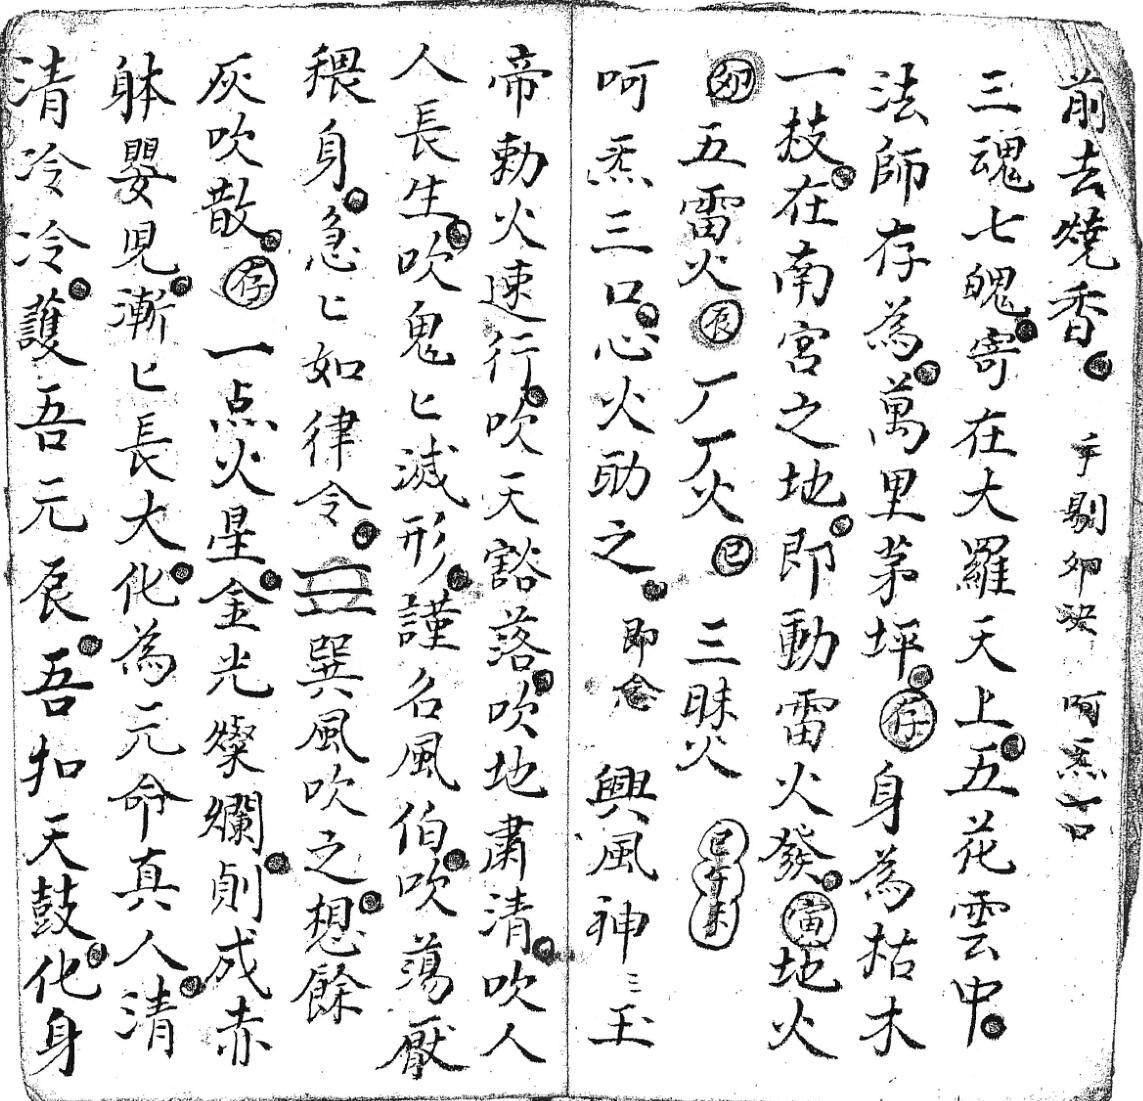 前去燒香 手剔卯決 呵炁一口
三魂七魄寄在大羅天上五花雲中
法師存為萬里茅坪存身為枯木
一枝在南宮之地即動雷火發寅地火
卯五雷火辰厂厂火巳三昧火巳午未
呵炁三口心火助之即念 興風神三玉
帝勅火速行吹天豁落吹地肅清吹人
人長生吹鬼匕滅形謹名風伯吹蕩厭
猥身急匕如律令 巽風吹之想餘
灰吹散存一点火星金光燦爛則成赤
躰嬰児漸匕長大化為元命真人清
清冷冷護吾元辰吾扣天鼓化身